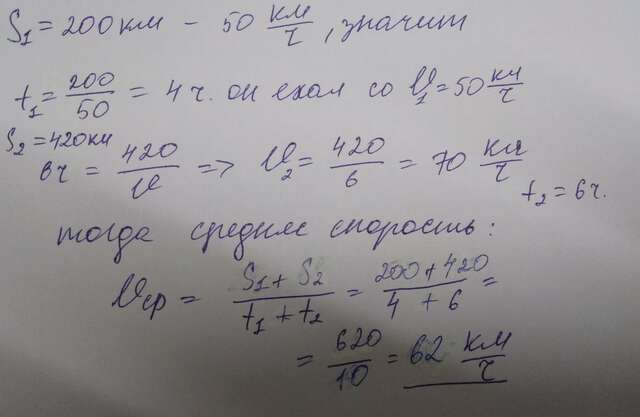 S₁ = 200 км – 50 км/ч, значит
t₁ = 200/50 = 4 ч. он ехал со V₁ = 50 км/ч
S₂ = 420 км
6ч = 420/V => V₂ = 420/6 = 70 км/ч
t₂ = 6ч.
тогда средняя скорость:
Vср = (S₁ + S₂)/(t₁ + t₂) = (200 + 420)/(4 + 6) =
= 620/10 = 62 км/ч